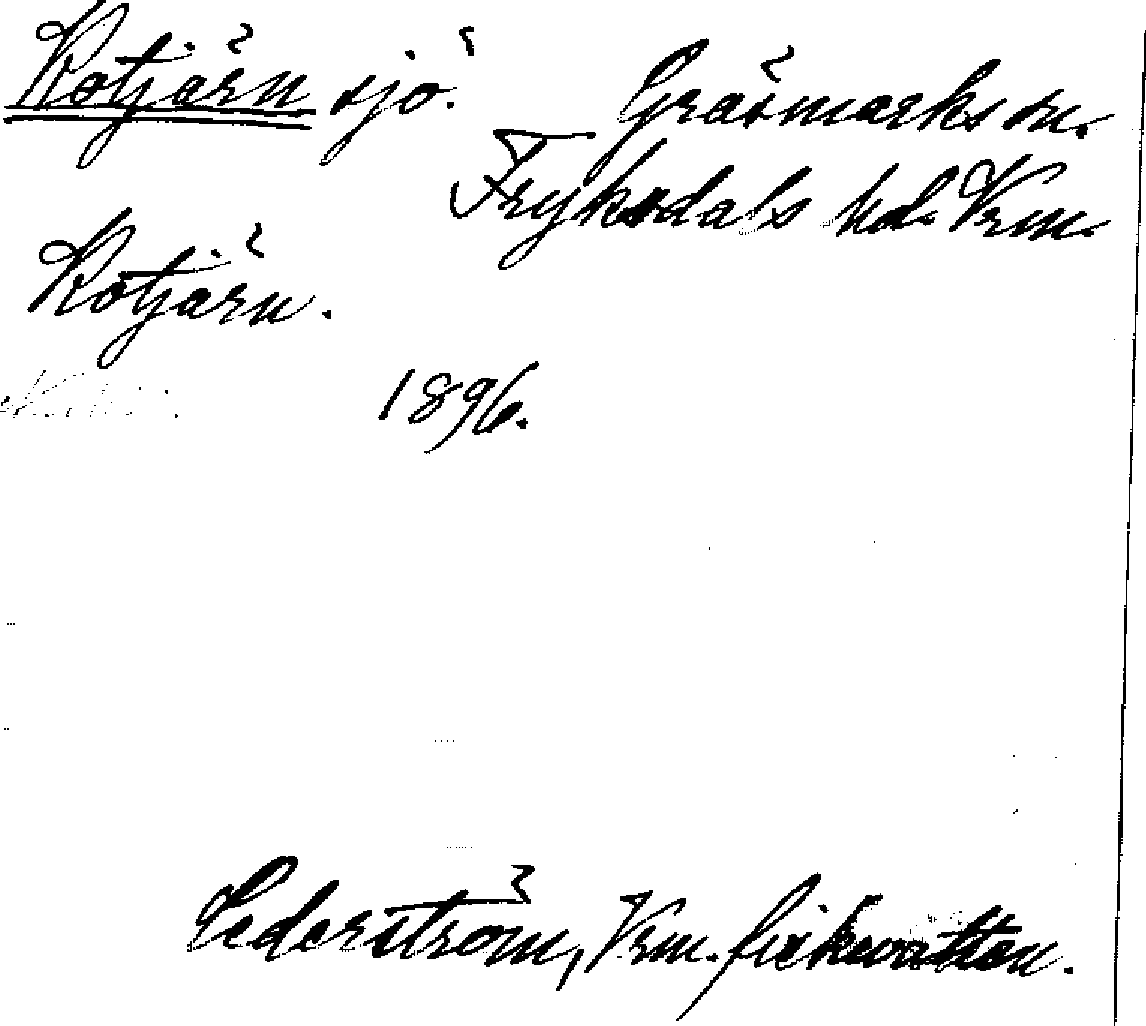 Kotjärn sjö. Gräsmarks sn.
Fryksdals hd. Vrm.
Kotjärn.
1896.
Cederström, Vrm. fiskevatten.